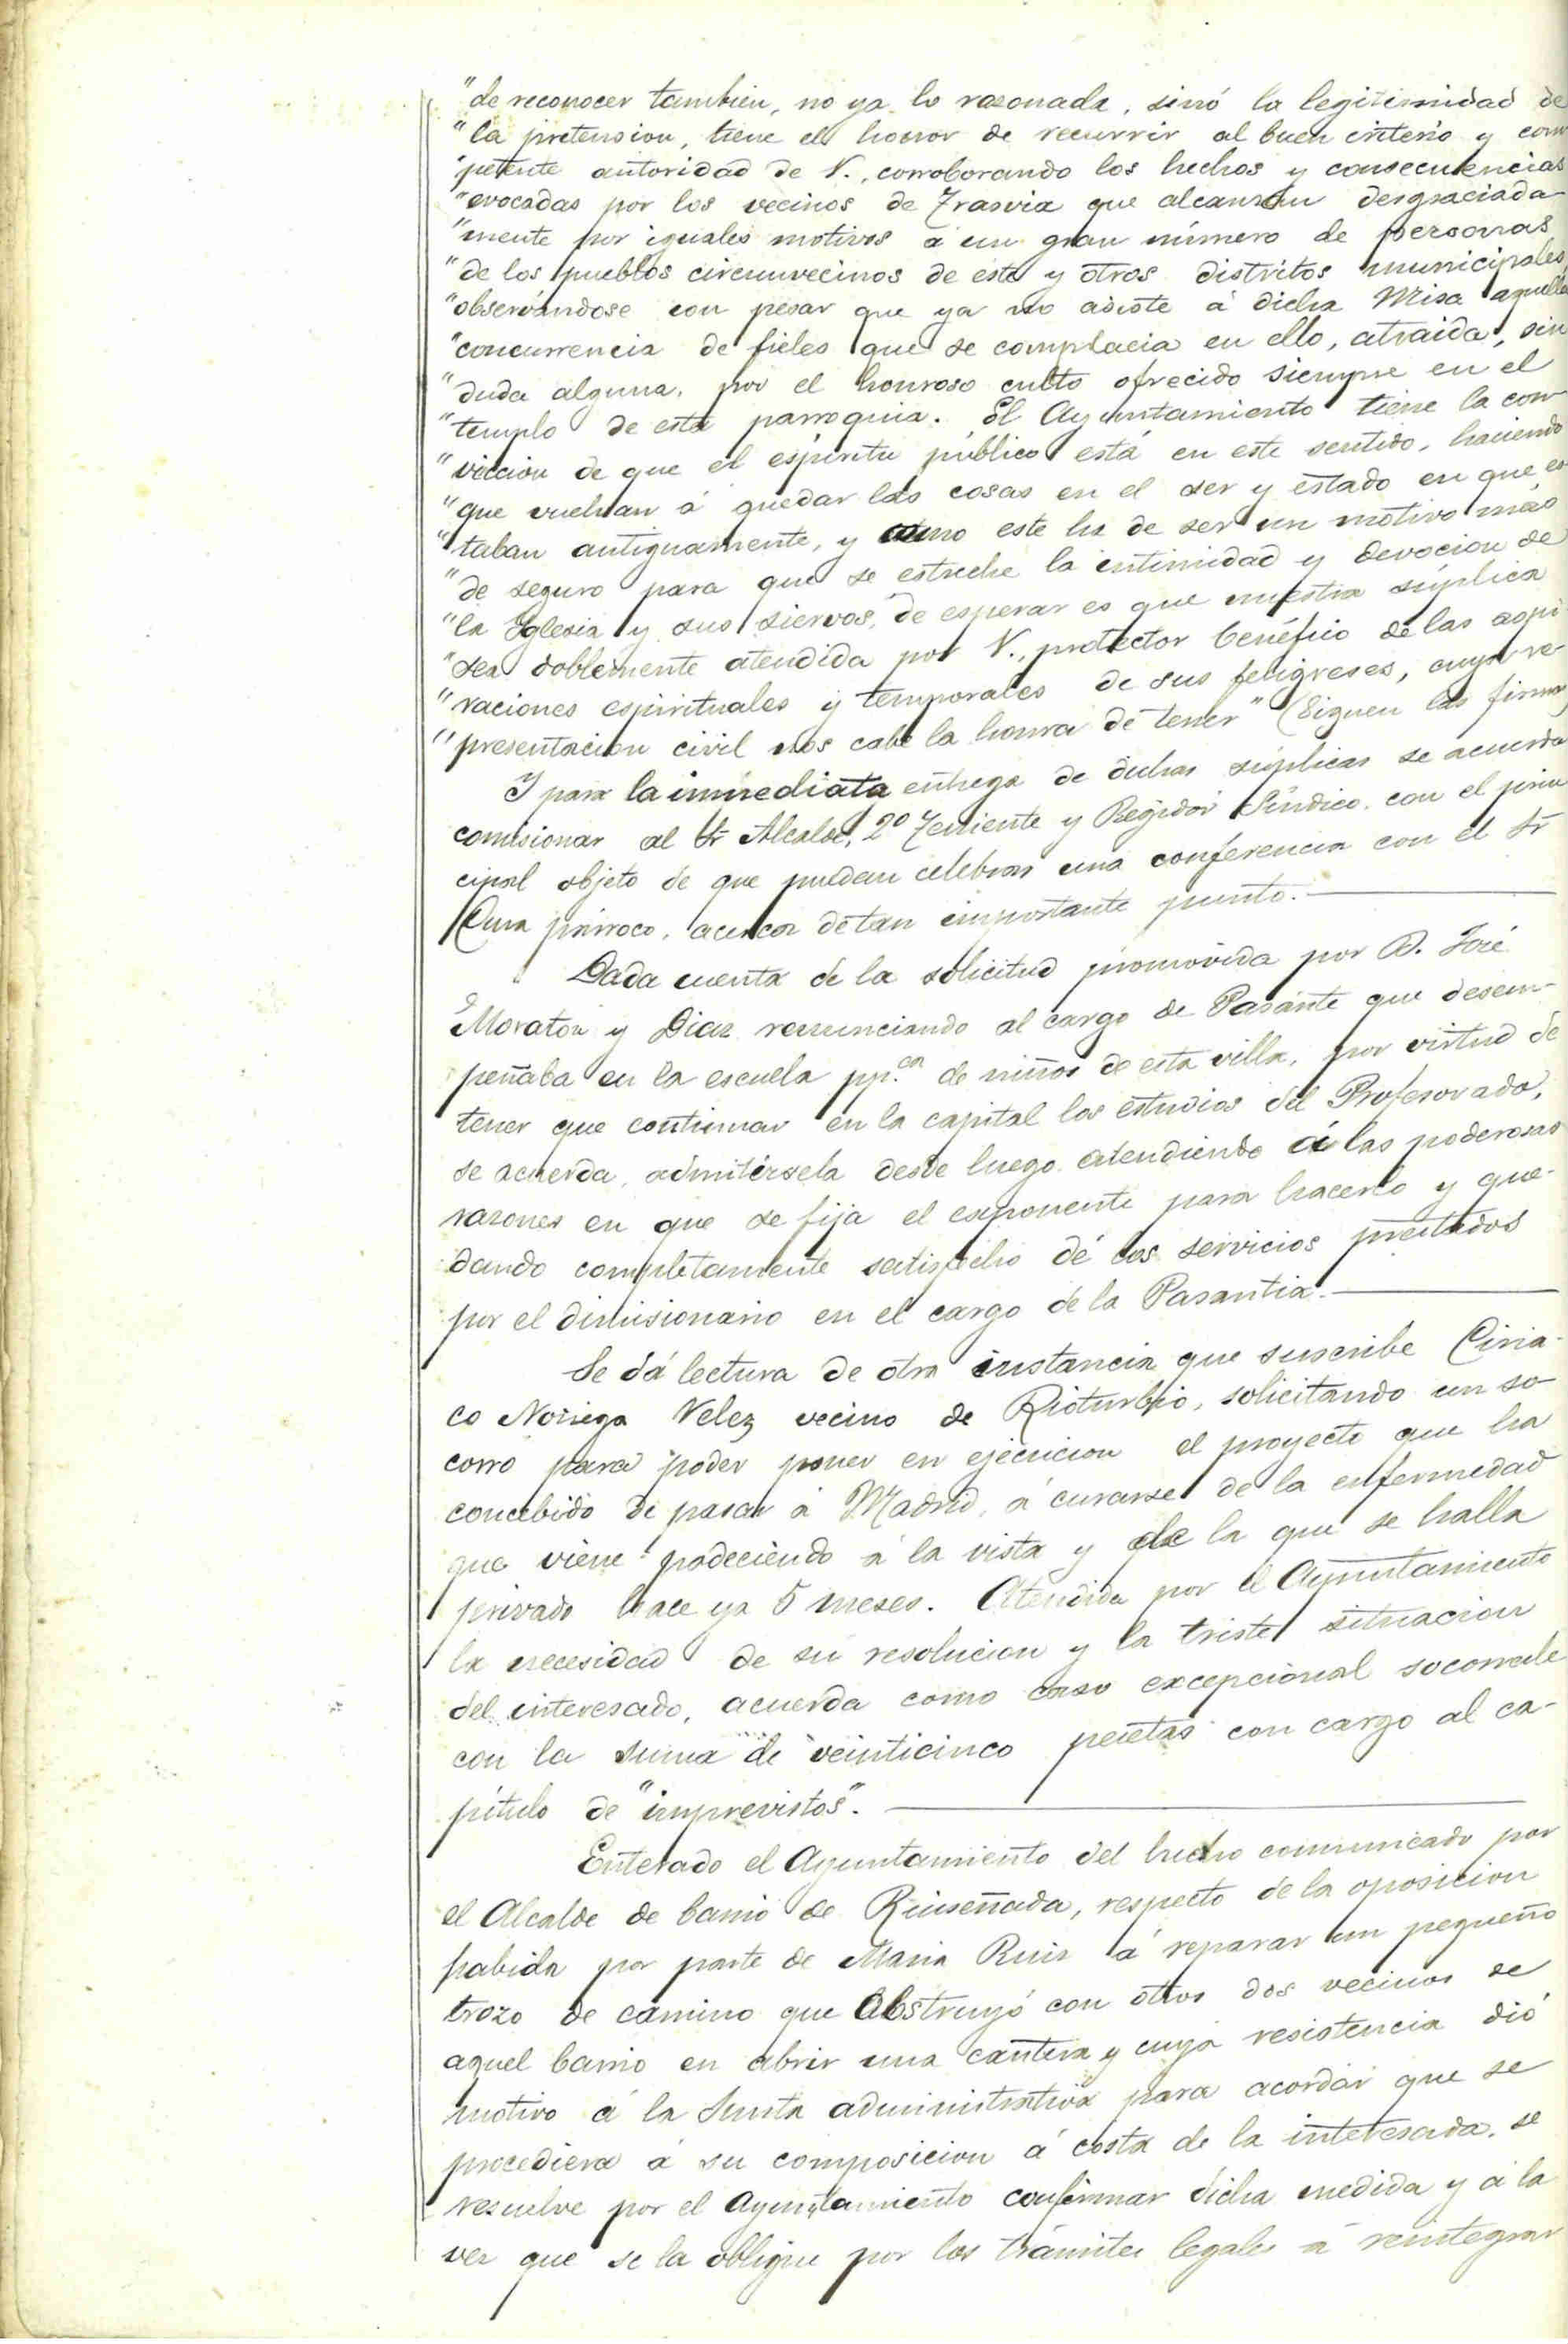 "de reconocer tambien, no ya lo razonada, sinó la legitimidad de
"la pretension, tiene el honor de recurrir al buen criterio y com
"petente autoridad de V., corroborando los hechos y consecuencias
"evocadas por los vecinos de Trasvia que alcanzan desgraciada
"mente por iguales motivos á un gran número de personas
"de los pueblos circunvecinos de este y otros distritos municipales,
"observándose con pesar que ya no asiste á dicha Misa aquella
"concurrencia de fieles que se complacia en ello, atraida, sin
"duda alguna, por el honroso culto ofrecido siempre en el
"templo de esta parroquia. El Ayuntamiento tiene la con
"viccion de que el espíritu público está en este sentido, haciendo
"que vuelvan á quedar las cosas en el ser y estado en que es
"taban antiguamente, y como este ha de ser un motivo más
"de seguro para que se estreche la intimidad y devocion de
"la Iglesia y sus siervos, de esperar es que nuestra súplica
"sea doblemente atendida por V., protector benéfico de las aspi
"raciones espirituales y temporales de sus feligreses, cuya re
"presentacion civil nos cabe la honra de tener" (Siguen las firmas
Y para la inmediata entrega de dichas súplicas se acuerda
comisionar al Sr Alcalde, 2º Teniente y Regidor Síndico, con el prin
cipal objeto de que puedan celebrar una conferencia con el Sr
Cura párroco, acerca de tan importante punto.
Dada cuenta de la solicitud promovida por D. José
Moraton y Diaz renunciando al cargo de Pasante que desem-
peñaba en la escuela pp.ca de niños de esta villa, por virtud de
tener que continuar en la capital los estudios del Profesorado,
se acuerda, admitírsela desde luego atendiendo á las poderosas
razones en que se fija el exponente para hacerlo y que-
dando completamente satisfecho de los servicios prestados
por el dimisionario en el cargo de la Pasantia.
Se dá lectura de otra instancia que suscribe Ciria-
co Noriega Velez vecino de Rioturbio, solicitando un so-
corro para poder poner en ejecucion el proyecto que ha
concebido de pasar á Madrid, á curarse de la enfermedad
que viene padeciendo á la vista y de la que se halla
privado hace ya 5 meses. Atendida por el Ayuntamiento
la necesidad de su resolucion y la triste situacion
del interesado, acuerda como caso excepcional socorrerle
con la suma de veinticinco pesetas con cargo al ca-
pítulo de "imprevistos".
Enterado el Ayuntamiento del hecho comunicado por
el Alcalde de barrio de Ruiseñada, respecto de la oposicion
habida por parte de Maria Ruiz á reparar un pequeño
trozo de camino que obstruyó con otros dos vecinos de
aquel barrio en abrir una cantera y cuya resistencia dió
motivo á la Junta administrativa para acordar que se
procediera á su composicion á costa de la interesada, se
resuelve por el Ayuntamiento confirmar dicha medida y á la
vez que se la obligue por los trámites legales á reintegrar